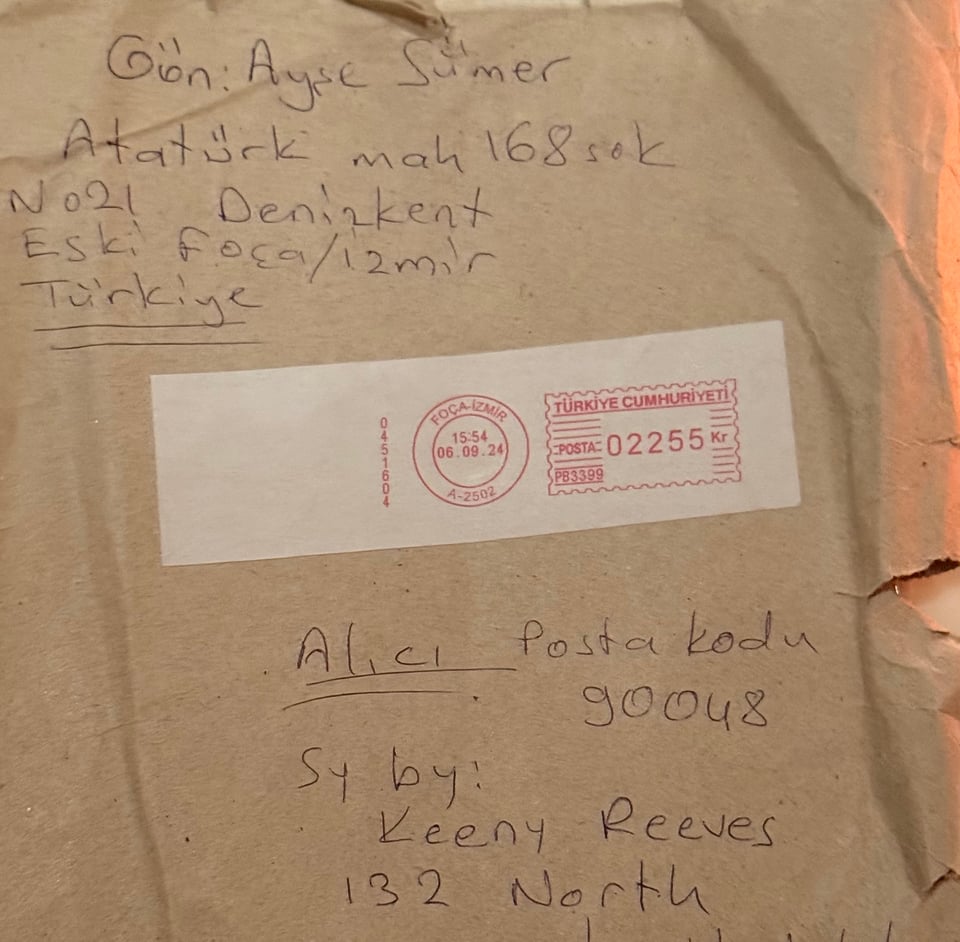 Gön: Ayşe Sümer
Atatürk mah 168 sok
No21 Denizkent
Eski Foça/izmir
Türkiye
0451604
FOÇA-İZMİR
15:54
06.09.24
A-2502
TÜRKİYE CUMHURİYETİ
POSTA 02255 Kr
PB3399
Alıcı Posta kodu
90048
Sy by:
Keeny Reeves
132 North